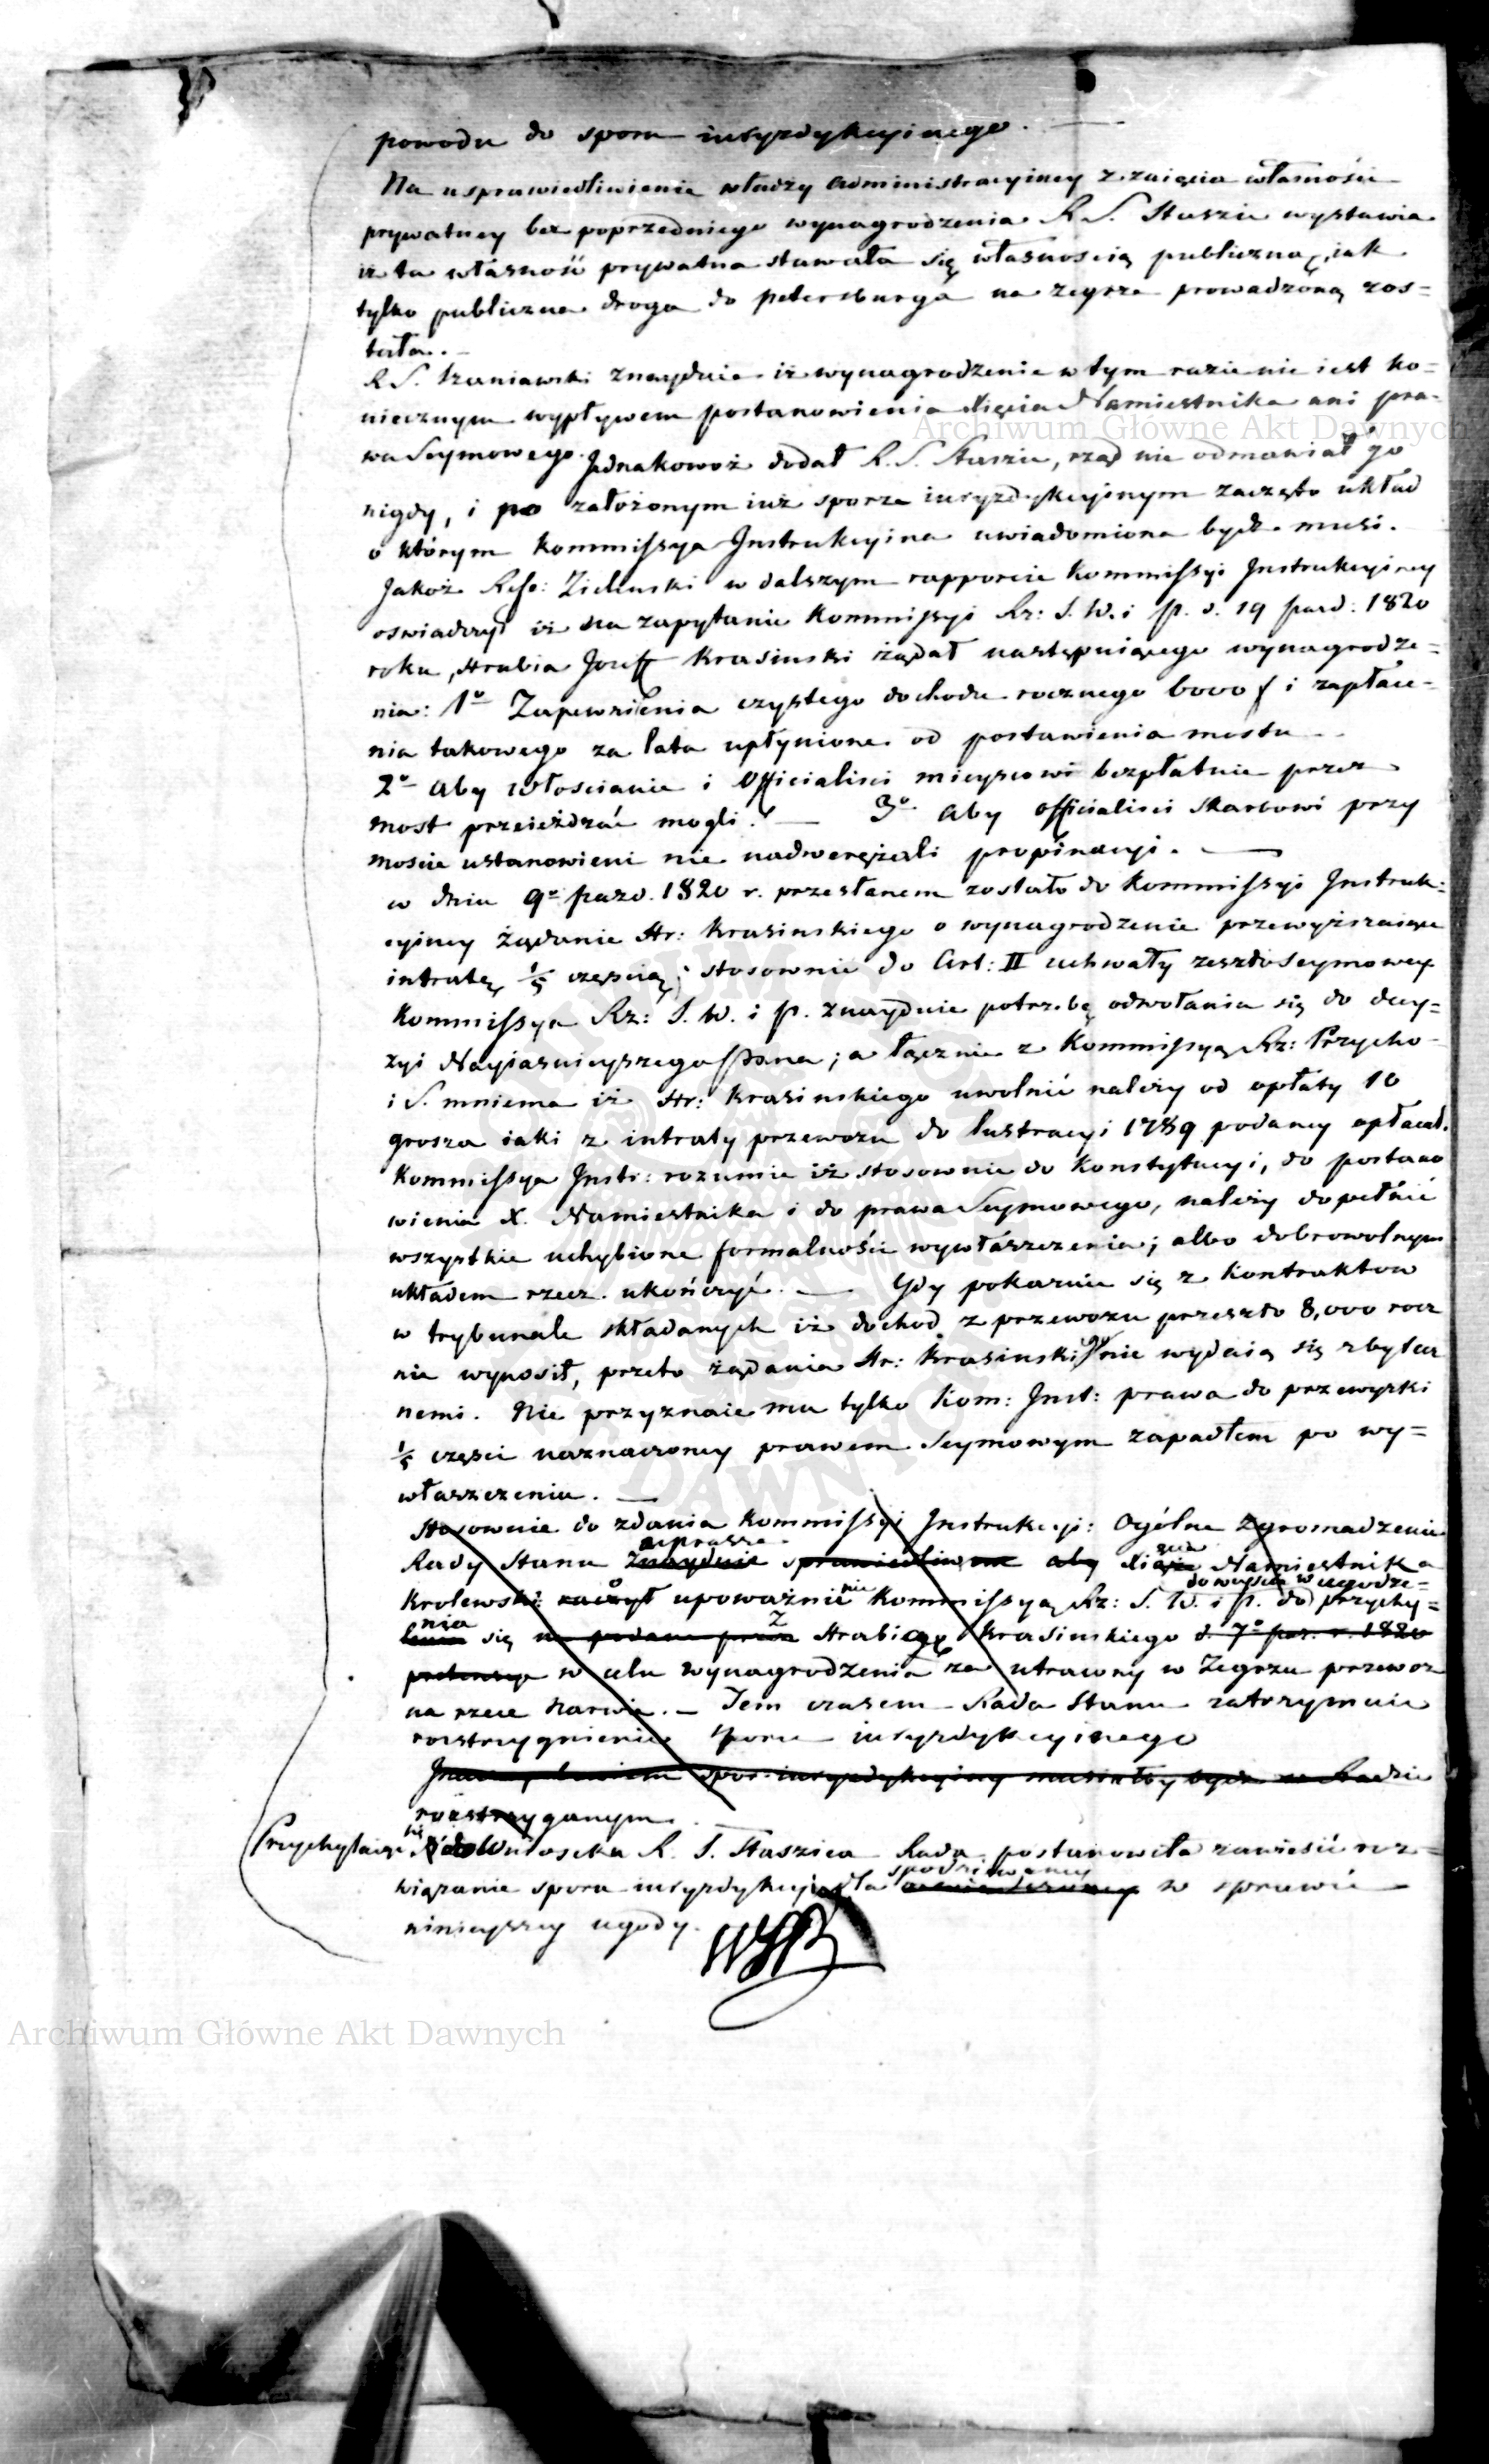 powodu do sporu iurysdykcyinego. —
Na usprawiedliwienie władzy administracyiney z zaięcia własności
prywatney bez poprzedniego wynagrodzenia R. S. Staszic wystawia
iż ta własność prywatna stawała się własnością publiczną, iak
tylko publiczna droga do Petersburga na Zegrze prowadzoną zos=
tała. —
R S. Szaniawski znayduie iż wynagrodzenie w tym razie nie iest ko=
niecznym wypływem postanowienia Xięcia Namiestnika ani pra-
wa Seymowego. Jednakowoż dodał R. S. Staszic, rząd nie odmawiał go
nigdy, i po założonym iuż sporze iurysdykcyinym zaczęto układ
o którym Kommissya Instrukcyina uwiadomiona bydź musi.
Jakoż Refe: Zielenski w dalszym rapporcie Kommissyi Instrukcyiney
oswiadczył iż na zapytanie Kommissyi Rz: S. W. i P. d. 19 paźd: 1820
roku, Hrabia Jozeff Krasinski żądał następuiącego wynagrodze=
nia: 1º Zapewnienia czystego dochodu rocznego 6000 f i zapłace-
nia takowego za lata upłynione od postawienia mostu —
2º aby włoscianie i officialisci mieyscowi bezpłatnie przez
most przeieżdzać mogli. — 3º aby officialisci skarbowi przy
moscie ustanowieni nie nadwerężali propinacyi. —
w dniu 9º pazd. 1820 r. przesłanem zostało do Kommissyi Instruk=
cyiney żądanie Hr: Krasinskiego o wynagrodzenie przewyższaiące
intratę 1/5 częscią; stosownie do Art: II uchwały zeszłoseymowey
Kommissya Rz: S. W. i P. znayduie potrzebę odwołania się do decy=
zyi Nayiasnieyszego Pana; a łącznie z Kommissyą Rz: Przycho-
i S. mniema iż Hr: Krasinskiego uwolnić należy od opłaty 10
grosza iaki z intraty przewozu do lustracyi 1789 podaney opłacał.
Kommissya Instr: rozumie iż stosownie do Konstytucyi, do postano
wienia X. Namiestnika i do prawa Seymowego, należy dopełnić
wszystkie uchybione formalności wywłaszczenia; albo dobrowolnym
układem rzecz ukończyć. — Gdy pokazuie się z Kontraktow
w trybunale składanych iż dochod z przewozu przeszło 8,000 rocz
nie wynosił, przeto żądania Hr: Krasinskiego nie wydaią się zbytecz
nemi. Nie przyznaie mu tylko Kom: Inst: prawa do przewyżki
1/5 częsci naznaczoney prawem Seymowym zapadłem po wy=
właszczeniu. —
Stosownie do zdania Kommissyi Instrukcyi: Ogólne Zgromadzenie
zaprasza
Rady Stanu znayduie sprawiedliwem aby Xiąże Namiestnika
do weyscia w ugodze=
Krolewski raczył upoważnienie Kommissyą Rz: S. W. i P. do przychy=
nia z
lenia się Hrabiego Krasinskiego d. 7º paz. r. 1820
pretensye w celu wynagrodzenia za utracony w Zegrzu przewoz
na rzece Narwi. — Tem czasem Rada Stanu zatrzymuie
rozstrzygnienie sporu iurysdykcyinego
Inaczey bowiem spor iurysdykcyiny musiałby bydź w Radzie
rozstrzyganym.
Przychylaiąc się do Wniosku R. S. Staszica Rada postanowiła zawiesić roz=
spodziewaney
wiązanie sporu iurysdykcyi dla w sprawie
ninieyszey ugody.
Archiwum Główne Akt Dawnych
Archiwum Główne Akt Dawnych